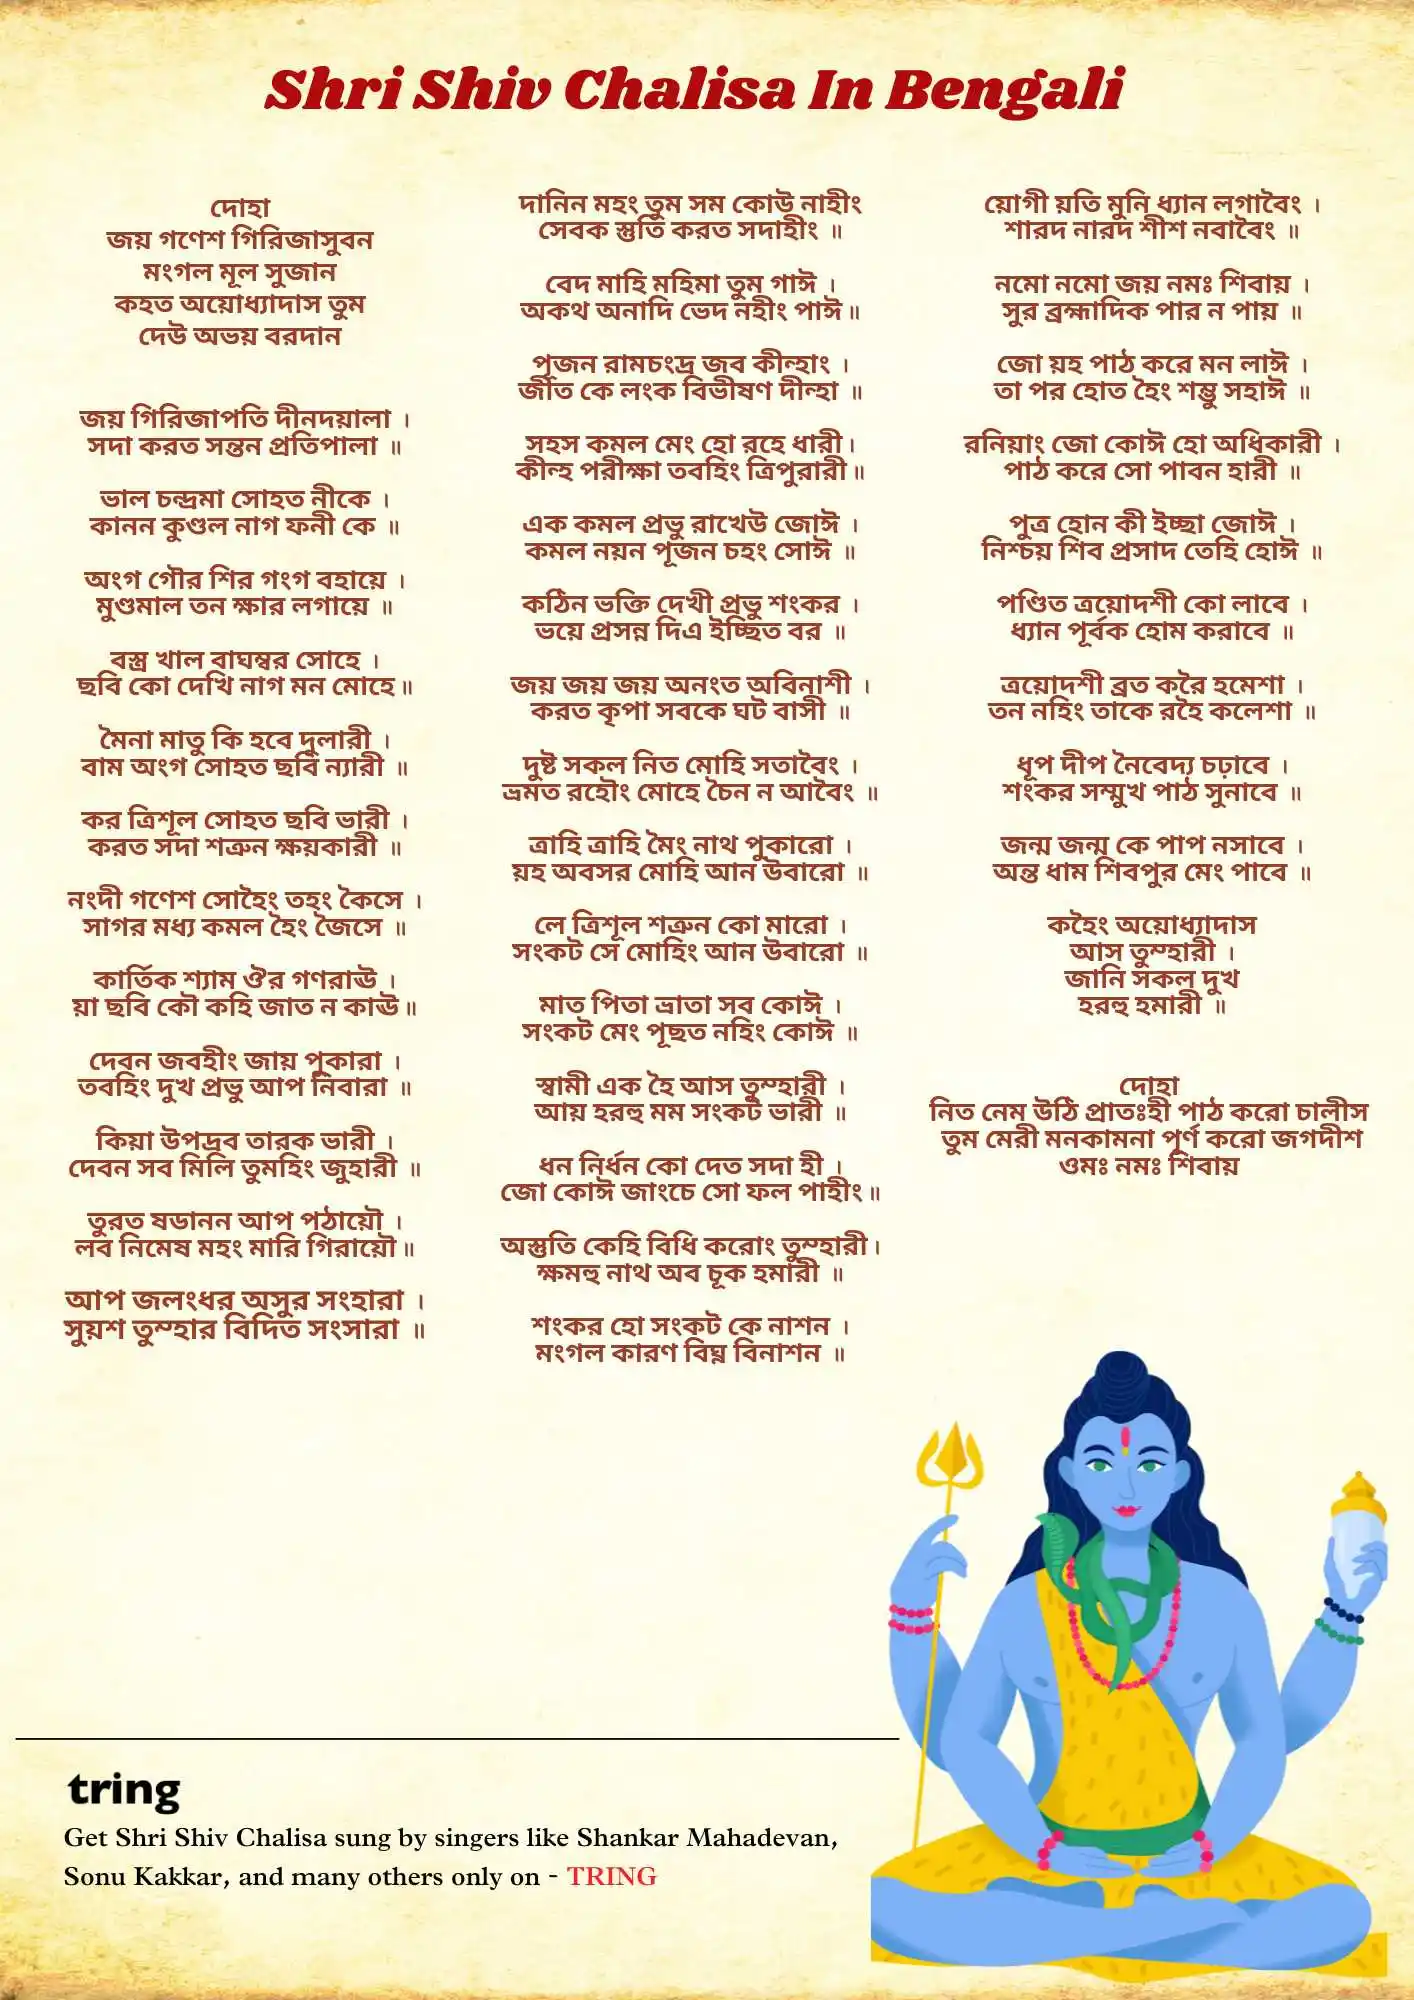 Shri Shiv Chalisa In Bengali
দোহা
জয় গণেশ গিরিজাসুবন
মংগল মূল সুজান
কহত অয়োধ্যাদাস তুম
দেউ অভয় বরদান
জয় গিরিজাপতি দীনদয়ালা ।
সদা করত সন্তন প্রতিপালা ॥
ভাল চন্দ্রমা সোহত নীকে ।
কানন কুণ্ডল নাগ ফনী কে ॥
অংগ গৌর শির গংগ বহায়ে ।
মুণ্ডমাল তন ক্ষার লগায়ে ॥
বস্ত্র খাল বাঘম্বর সোহে ।
ছবি কো দেখি নাগ মন মোহে॥
মৈনা মাতু কি হবে দুলারী ।
বাম অংগ সোহত ছবি ন্যারী ॥
কর ত্রিশূল সোহত ছবি ভারী ।
করত সদা শত্রুন ক্ষয়কারী ॥
নংদী গণেশ সোহৈং তহং কৈসে ।
সাগর মধ্য কমল হৈং জৈসে ॥
কার্তিক শ্যাম ঔর গণরাঊ ।
য়া ছবি কৌ কহি জাত ন কাঊ॥
দেবন জবহীং জায় পুকারা ।
তবহিং দুখ প্রভু আপ নিবারা ॥
কিয়া উপদ্রব তারক ভারী ।
দেবন সব মিলি তুমহিং জুহারী ॥
তুরত ষডানন আপ পঠায়ৌ ।
লব নিমেষ মহং মারি গিরায়ৌ॥
আপ জলংধর অসুর সংহারা ।
সুয়শ তুম্হার বিদিত সংসারা ॥
দানিন মহং তুম সম কোউ নাহীং
সেবক স্তুতি করত সদাহীং ॥
বেদ মাহি মহিমা তুম গাঈ ।
অকথ অনাদি ভেদ নহীং পাঈ॥
পূজন রামচংদ্র জব কীন্হাং ।
জীত কে লংক বিভীষণ দীন্হা ॥
সহস কমল মেং হো রহে ধারী।
কীন্হ পরীক্ষা তবহিং ত্রিপুরারী॥
এক কমল প্রভু রাখেউ জোঈ ।
কমল নয়ন পূজন চহং সোঈ ॥
কঠিন ভক্তি দেখী প্রভু শংকর ।
ভয়ে প্রসন্ন দিএ ইচ্ছিত বর ॥
জয় জয় জয় অনংত অবিনাশী ।
করত কৃপা সবকে ঘট বাসী ॥
দুষ্ট সকল নিত মোহি সতাবৈং ।
ভ্রমত রহৌং মোহে চৈন ন আবৈং ॥
ত্রাহি ত্রাহি মৈং নাথ পুকারো ।
য়হ অবসর মোহি আন উবারো ॥
লে ত্রিশূল শত্রুন কো মারো ।
সংকট সে মোহিং আন উবারো ॥
মাত পিতা ভ্রাতা সব কোঈ ।
সংকট মেং পূছত নহিং কোঈ ॥
স্বামী এক হৈ আস তুম্হারী ।
আয় হরহু মম সংকট ভারী ॥
ধন নির্ধন কো দেত সদা হী ।
জো কোঈ জাংচে সো ফল পাহীং॥
অস্তুতি কেহি বিধি করোং তুম্হারী।
ক্ষমহু নাথ অব চূক হমারী ॥
শংকর হো সংকট কে নাশন ।
মংগল কারণ বিঘ্ন বিনাশন ॥
য়োগী য়তি মুনি ধ্যান লগাবৈং ।
শারদ নারদ শীশ নবাবৈং ॥
নমো নমো জয় নমঃ শিবায় ।
সুর ব্রহ্মাদিক পার ন পায় ॥
জো য়হ পাঠ করে মন লাঈ ।
তা পর হোত হৈং শম্ভু সহাঈ ॥
রনিয়াং জো কোঈ হো অধিকারী ।
পাঠ করে সো পাবন হারী ॥
পুত্র হোন কী ইচ্ছা জোঈ ।
নিশ্চয় শিব প্রসাদ তেহি হোঈ ॥
পণ্ডিত ত্রয়োদশী কো লাবে ।
ধ্যান পূর্বক হোম করাবে ॥
ত্রয়োদশী ব্রত করৈ হমেশা ।
তন নহিং তাকে রহৈ কলেশা ॥
ধূপ দীপ নৈবেদ্য চঢ়াবে ।
শংকর সম্মুখ পাঠ সুনাবে ॥
জন্ম জন্ম কে পাপ নসাবে ।
অন্ত ধাম শিবপুর মেং পাবে ॥
কহৈং অয়োধ্যাদাস
আস তুম্হারী ।
জানি সকল দুখ
হরহু হমারী ॥
দোহা
নিত নেম উঠি প্রাতঃহী পাঠ করো চালীস
তুম মেরী মনকামনা পূর্ণ করো জগদীশ
ওমঃ নমঃ শিবায়
tring
Get Shri Shiv Chalisa sung by singers like Shankar Mahadevan,
Sonu Kakkar, and many others only on - TRING